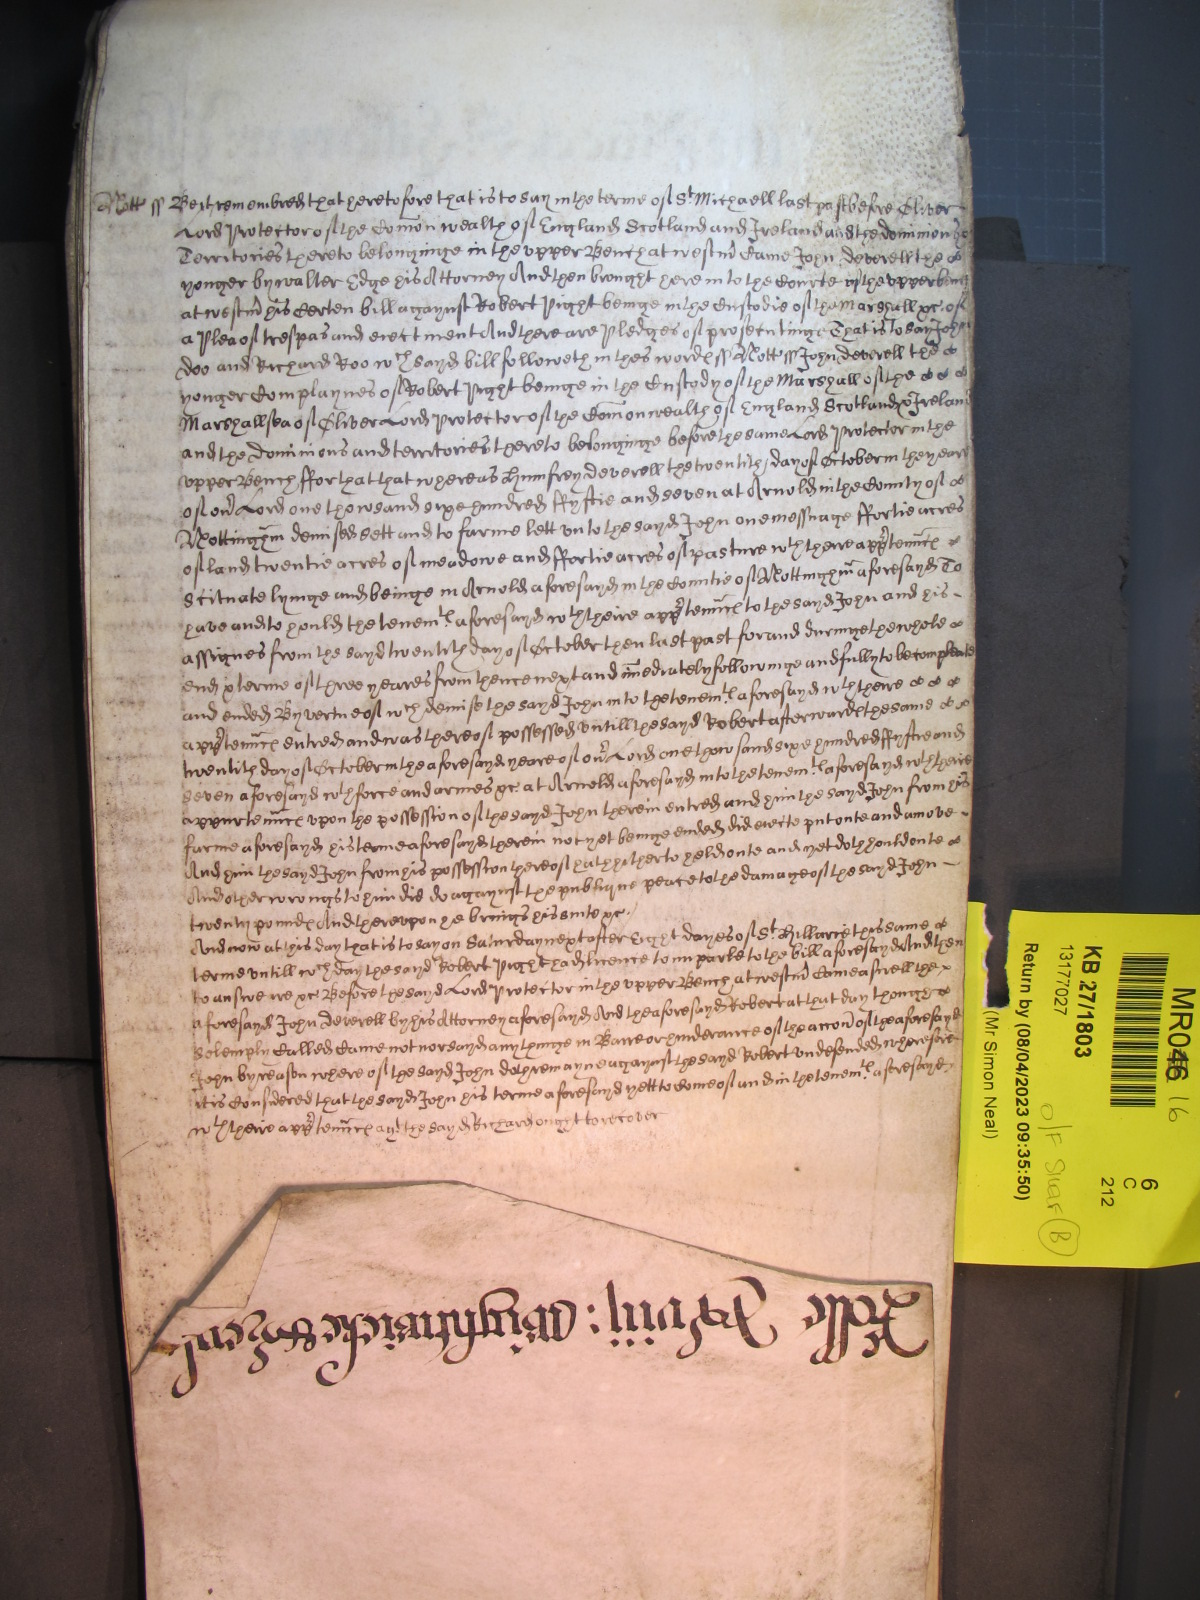 Nott ss Be it remembred that heretofore that is to say in the terme of St Michaell last past before Oliver
Lord Protector of the Comon wealth of England Scotland and Ireland and the dominions &
Territories thereto belonginge in the upper Bench at westmr Came John deverell the
yonger by walter Edge his Attorney And then brought here into the Courte of the upper bench
at westmr his Certen bill against Robert Pight beinge in the Custodie of the Marshall &c of
a Plea of trespas and eiectment And there are Pledges of prosecutinge That is to say John
doo and Richard Roo wch sayd bill followeth in thes words ss Nott ss John deverell the
yonger Complaynes of Robert Pight beinge in the Custody of the Marshall of the
Marshallsea of Oliver Lord Protector of the Comonwealth of England Scotland & Ireland
and the Dominions and territories thereto belonginge before the same Lord Protector in the
upper Bench ffor that that whereas Humfrey deverell the twentith day of October in the yeare
of our Lord one thowsand sixe hundred ffyftie and seven at Arnold in the County of
Nottingham demised sett and to farme lett unto the sayd John one messuage ffortie acres
of land twentie acres of meadowe and ffortie acres of pasture wth there apptennces
scituate lyinge and beinge in Arnold aforesayd in the Countie of Nottingham aforesayd To
have and to hould the tenemts aforesayd wth theire apptennces to the sayd John and his
assignes from the sayd twentith day of October then last past for and duringe the whole
end & terme of three yeares from thence next and imediately followinge and fully to be compleate
and ended By vertue of wch demise the sayd John into the tenemts aforesayd wth there
apptennces entred and was thereof possessed untill the sayd Robert afterwards the same
twentith day of October in the aforesayd yeare of our Lord one thowsand sixe hundred ffyftie and
seven aforesayd wth force and armes &c at Arnold aforesayd into the tenemts aforesayd wth theire
appurtennces upon the possession of the sayd John therein entred and him the sayd John from his
farme aforesayd his terme aforesayd therein not yet beinge ended did eiecte put oute and amove
And him the sayd John from his possession thereof hath hitherto held oute and yet doth hould oute
And other wrongs to him did do against the publique peace to the damage of the sayd John
twenty pounds And thereupon he brings his suite &c.
And now at this day that is to say on Saturday next after Eight dayes of St Hillarie this same
terme untill wch day the sayd Robert Pight had licence to imparle to the bill aforesayd And then
to answere &c Before the sayd Lord Protector in the upper Bench at westmr Came aswell the
aforesayd John deverell by his Attorney aforesayd And the aforesayd Robert at that day though
solemply Called Came not nor sayd any thinge in Barre or hinderance of the accon of the aforesayd
John by reason where of the sayd John doth remayne against the sayd Robert undefended wherefore
it is Considered that the sayd John his terme aforesayd yett to Come of and in the tenemts aforesayd
wth theire apptennces agt the sayd Richard ought to recover
Rolle
Wightwicke
MR046 16
KB 27/1803
13177027
Return by (08/04/2023 09:35:50)
(Mr Simon Neal)
6
C
212
B